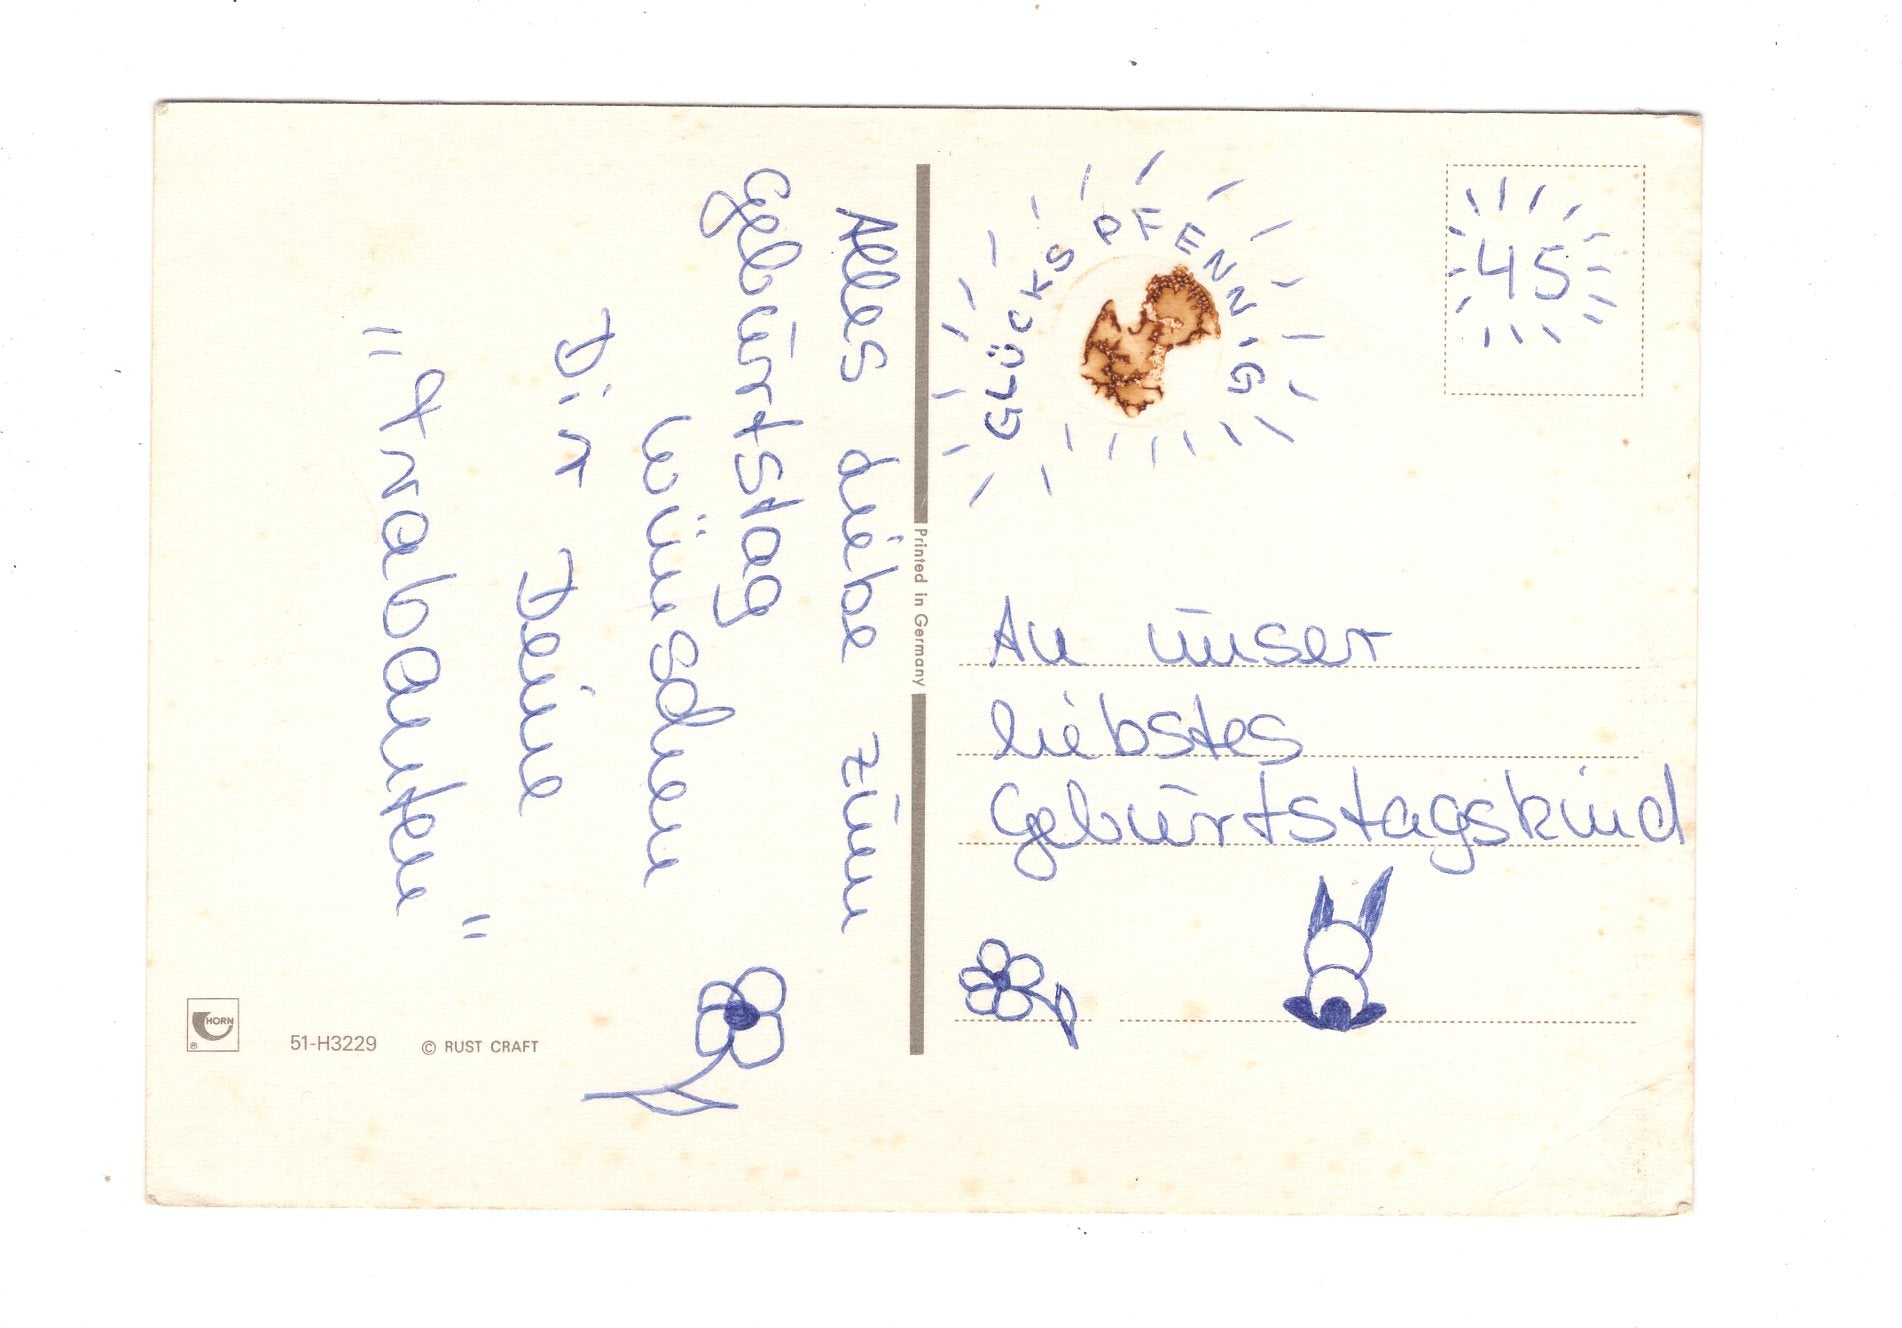 Alles Liebe zum
Geburtstag
wünschen
Dir Deine
"Trabanten"
GLÜCKSPFENNIG
45
An unser
liebstes
Geburtstagskind
Printed in Germany
HORN
®
51-H3229 © RUST CRAFT